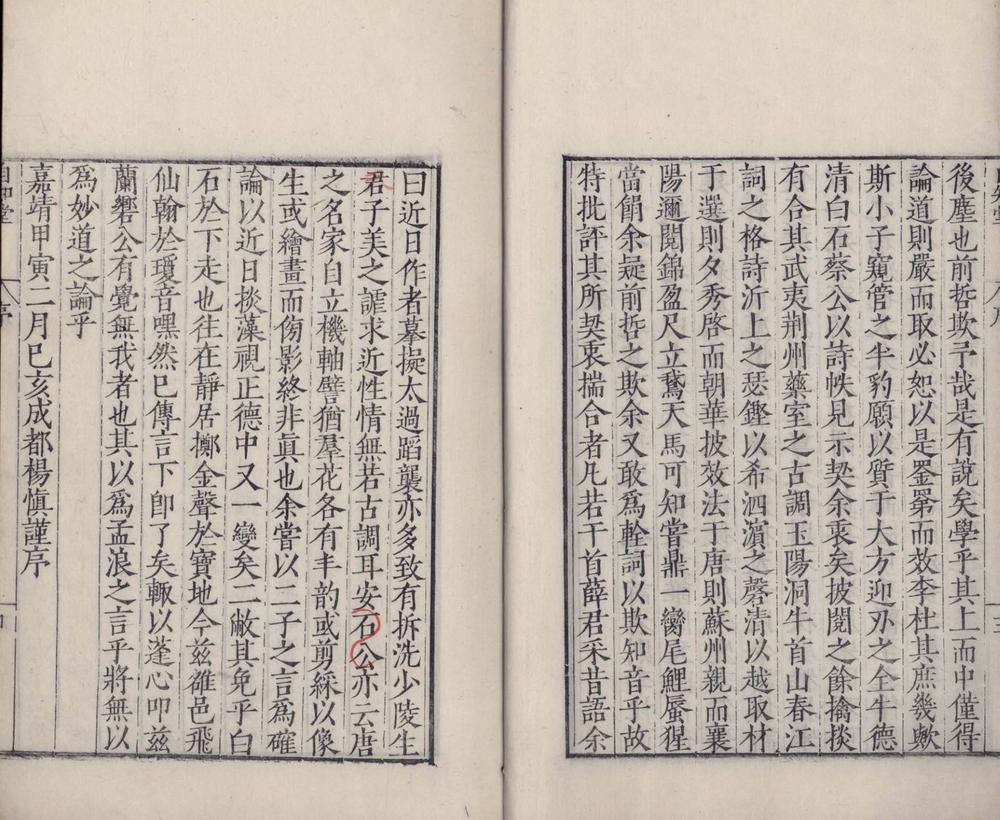 後塵也前哲欺予哉是有說矣學乎其上而中僅得
論道則嚴而取必恕以是罣罤而效李杜其庶幾歟
斯小子窺管之半豹願以質于大方迎刃之全牛德
清白石蔡公以詩帙見示契余衷矣披閱之餘擒掞
有合其武夷荆州藥室之古調玉陽洞牛首山春江
詞之格詩沂上之瑟鏗以希泗濵之磬清以越取材
于選則夕秀啓而朝華披效法于唐則蘇州親而襄
陽邇閱錦盈尺立鵞天馬可知嘗鼎一臠尾鯉蜃猩
當餶余疑前哲之欺余又敢爲輇詞以欺知音乎故
特批評其所契衷揣合者凡若干首薛君采昔語余
曰近日作者摹擬太過蹈襲亦多致有拆洗少陵生
君子美之謔求近性情無若古調耳安石公亦云唐
之名家自立機軸譬猶羣花各有丰韵或剪綵以像
生或繪畫而傍影終非眞也余嘗以二子之言爲確
論以近日掞藻視正德中又一變矣二敝其免乎白
石於下走也往在靜居擲金聲於寶地今兹雒邑飛
仙翰於瓊音嘿然已傳言下卽了矣輙以蓬心叩兹
蘭響公有覺無我者也其以爲孟浪之言乎將無以
爲妙道之論乎
嘉靖甲寅二月巳亥成都楊愼謹序
序